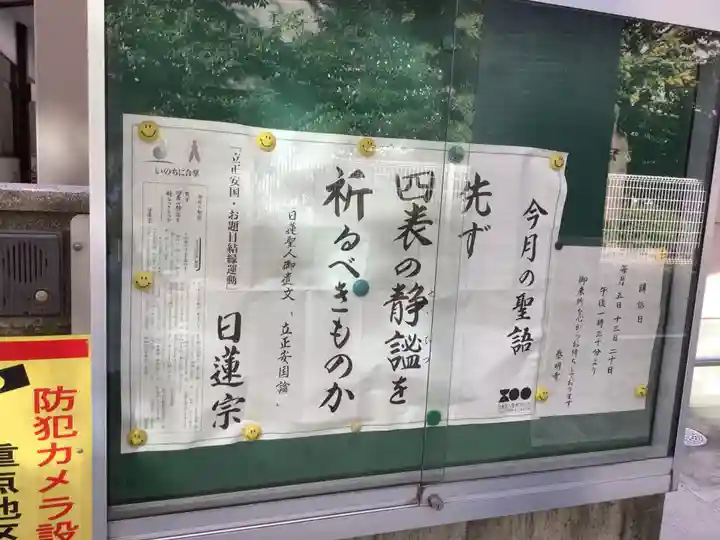 講話日
毎月 五日 十三日 二十日
午後一時三十分より
御来所を心からお待ちしております
今月の聖語
先ず
四表の静謐を
せいひつ
祈るべきものか
日蓮聖人御遺文『立正安国論』
「立正安国・お題目結縁運動」
日蓮宗
いのちに合掌
防犯カメラ設
重点地区